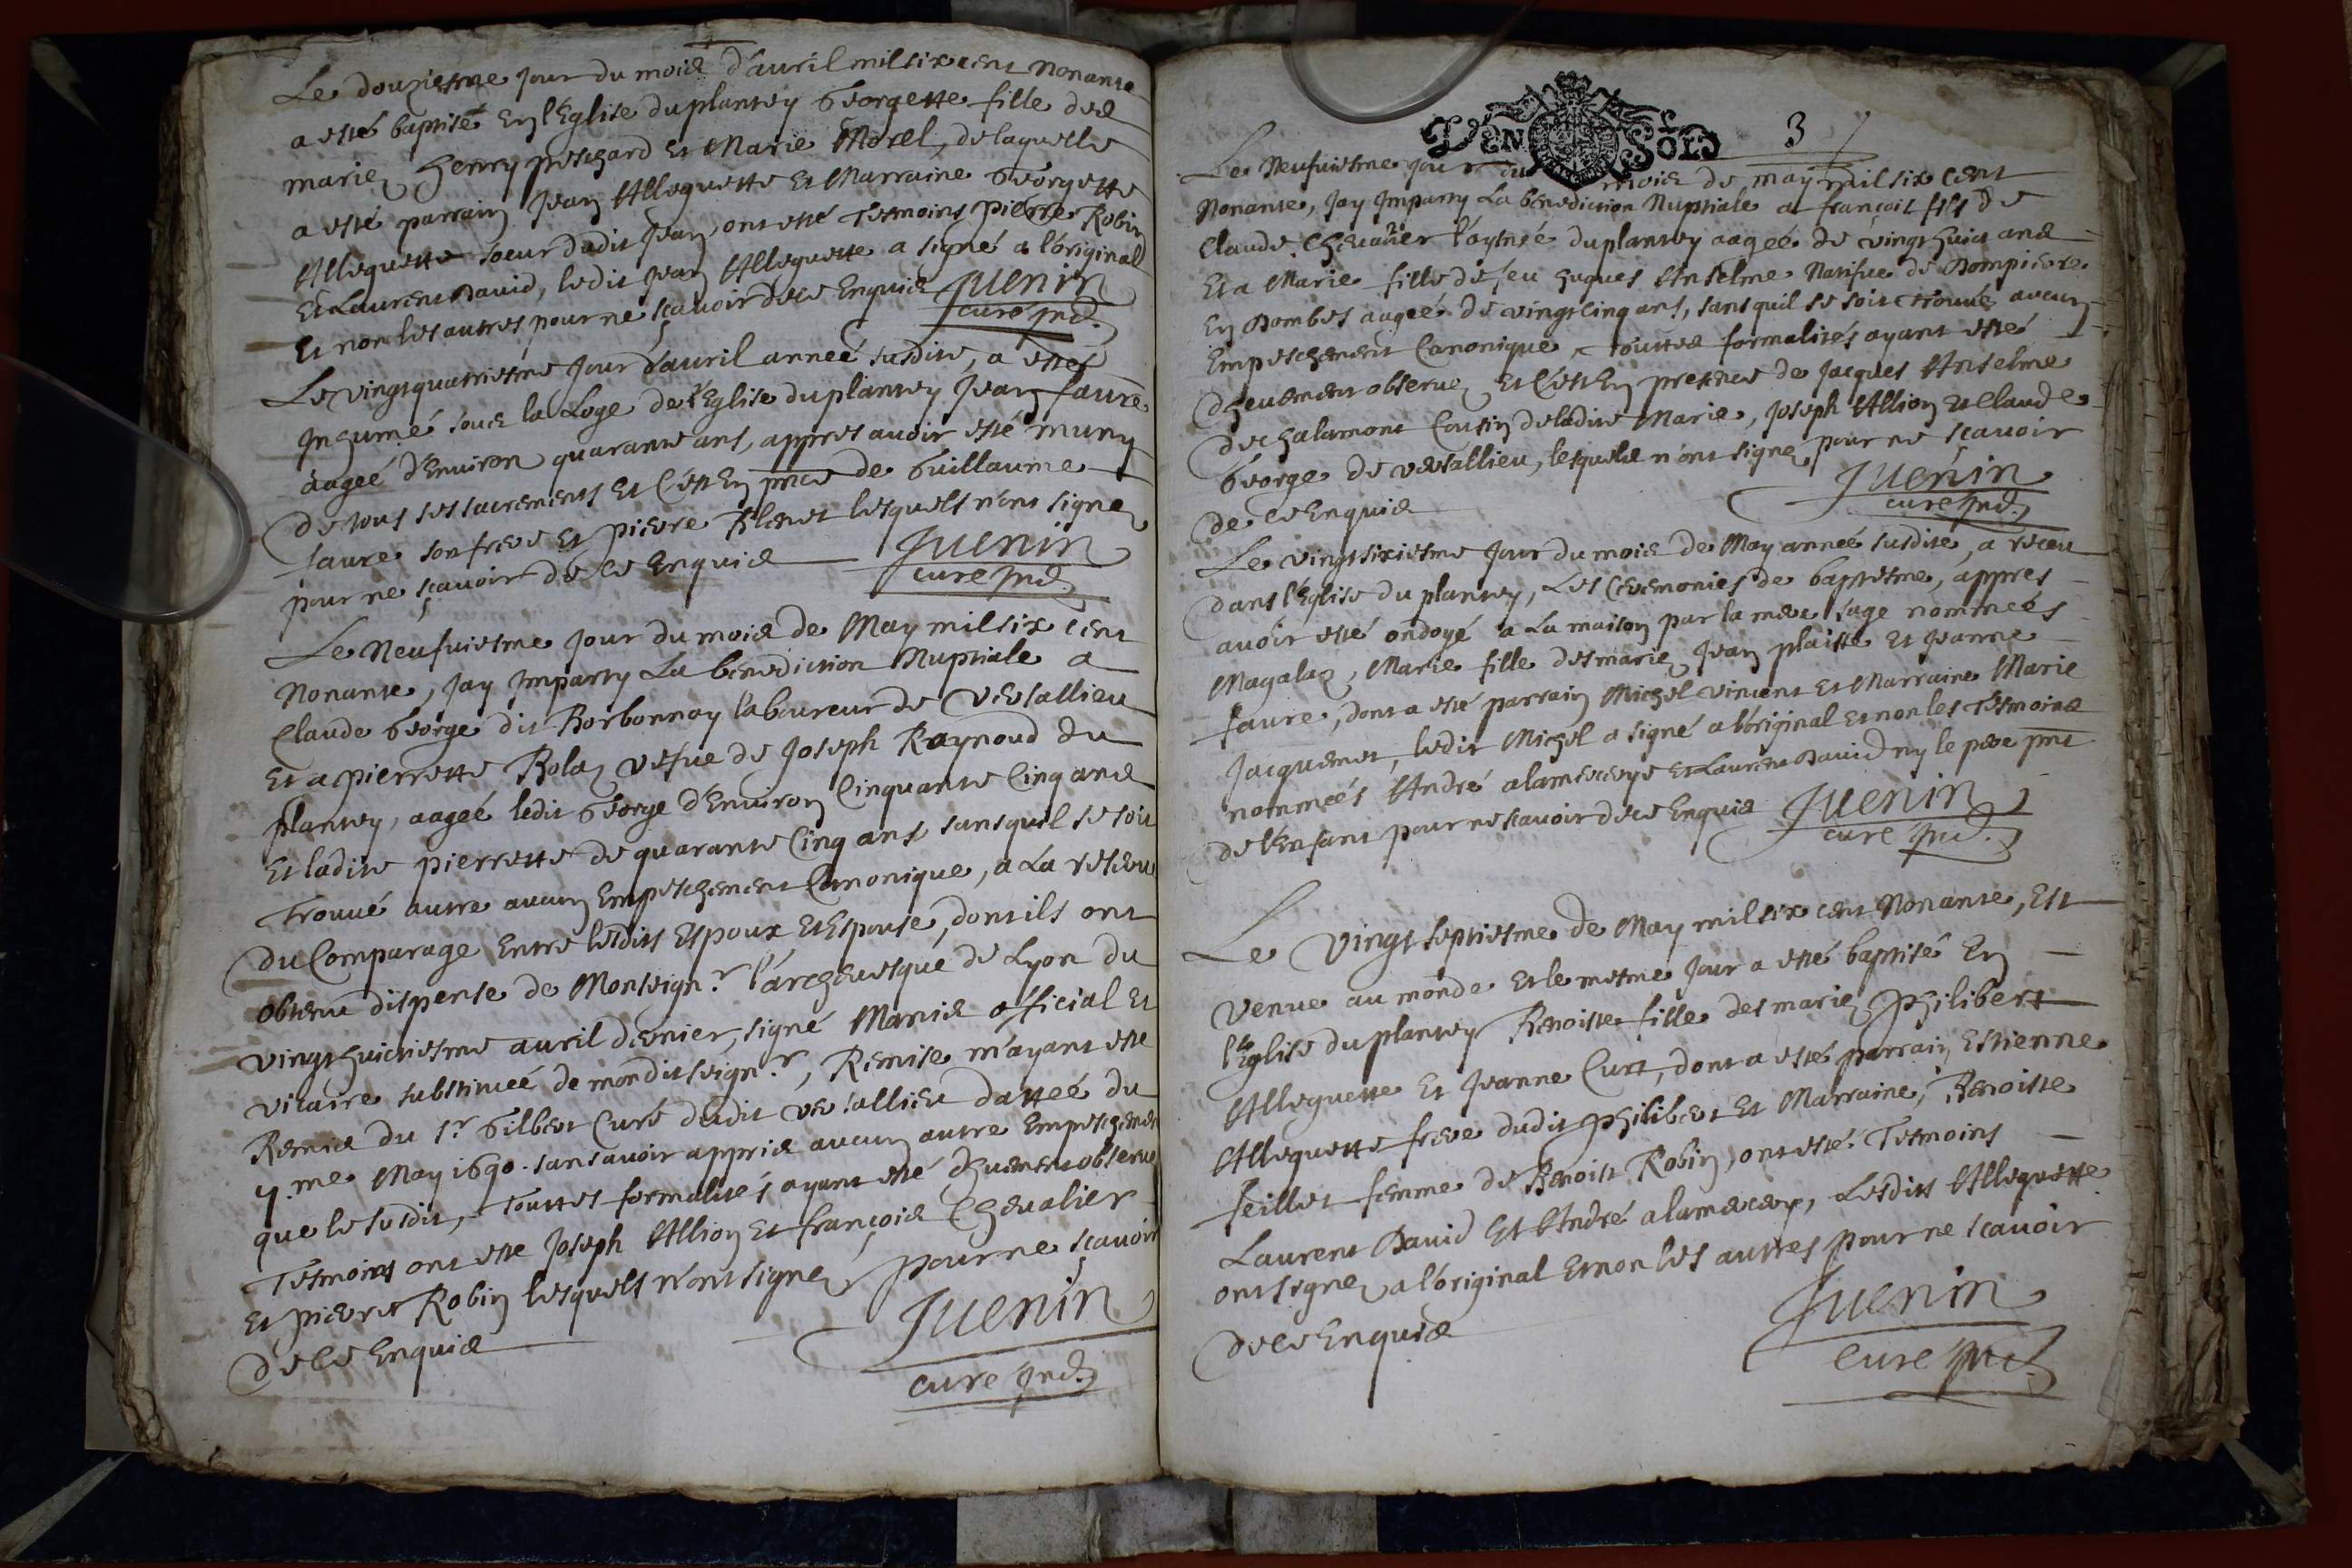 Le douziesme jour du mois d'auril mil six cent nonante
a esté baptisé en l'Eglise du plantey George​tte fille des
mariez henry preschard et Marie Morel, de laquelle
a esté parrain Jean Alloquette et Marraine Georgette
Alloquette soeur dudit Jean, ont esté tesmoins pierre Robin
et Laurent David, ledit Jean Alloquette a signé a l'original
et non les autres pour ne sçavoir de ce Enquis
Juenin
curé
Le vingt quatriesme jour d'auril anneé susdite, a esté
Inhumé sous la Loge de l'Eglise du plantey Jean faure
aageé d'Environ quarante ans, appres auoir esté muny
de tous ses sacrements et C'est En pnce de Guillaume
faure son frere et pierre lesquels n'ont signez
pour ne sçavoir de ce Enquis
Juenin
curé
Le Neufuiesme jour du mois de May mil six cent
Nonante, Jay Imparty La benediction Nuptiale a
Claude George dit Borbonnay laboureur de Versallieu
Et a pierrette Rolaz vefue de Joseph Raynoud du
plantey, aageé ledit George d'Environ Cinquante Cinq ans
Et ladite pierrette de quarante Cinq ans sans quil se soit
Trouué autre aucun Empeschement Canonique, a La reserue
du Comparage Entre lesdits Espoux et Espouse, dont ils ont
obtenu dispense de Monseign.r l'archeuesque de Lyon du
vingt huictiesme auril dernier, signé Manis official et
vicaire substitueé de mondit seign.r, Remise m'ayant esté
Remis du s.r Gilbert Curé dudit versallieu datteé du
me May 1690. sans auoir appris aucun autre Empeschement
que le susdit, Touttes formalités ayant esté dheuement obserué
Tesmoins ont esté Joseph Allion et françois Cheualier
Et pierre Robin lesquels n'ont signez pour ne sçauoir
de ce Enquis
Juenin
cure
DEN SOLS
3
Le Neufuiesme jour du mois de may mil six cent
Nonante, Jay Imparty La benediction Nuptiale a françois fils de
Claude Cheualier l'aytneé du plantey aageé de vingt huict ans
Et a Marie fille de feu hugues Anselme Natifue de Dompierre
En Dombes aageé de vingt cinq ans, sans quil se soit trouué aucun
Empeschement Canonique, touttes formalités ayant esté
dheuement obseruez Et C'est En presence de Jacques Anselme
de chalamont Cousin de ladite Marie, Joseph Allion et Claude
George de versallieu, lesquels n'ont signez pour ne sçauoir
de ce Enquis
Juenin
curé
Le vingt sixiesme jour du mois de May anneé susdite, a receu
dans l'Eglise du plantey, Les Ceremonies de baptesme, appres
auoir esté ondoyé a La maison par la mere sage nommeés
Magalaz, Marie fille des mariez Jean plaitte et Jeanne
faure, dont a esté parrain Michel vincent et Marraine Marie
Jacquemet, ledit Michel a signé a l'original et non les Tesmoins
nommeés André alamercerye et Laurent David ny le pere pnt
de l'Enfant pour ne scauoir de ce Enquis
Juenin
cure
Le vingt septiesme de May mil six cent Nonante, Est
venue au monde et le mesme jour a esté baptisé En
l'Eglise du plantey Benoiste fille des mariez Philibert
Alloquette et Jeanne Curt, dont a esté parrain Estienne
Alloquette frere dudit Philibert et Marraine, Benoiste
feillet femme de Benoist Robin, ont esté Tesmoins
Laurent David et André alamercery, Lesdits Alloquette
ont signez a l'original et non les autres pour ne scauoir
de ce Enquis
Juenin
cure